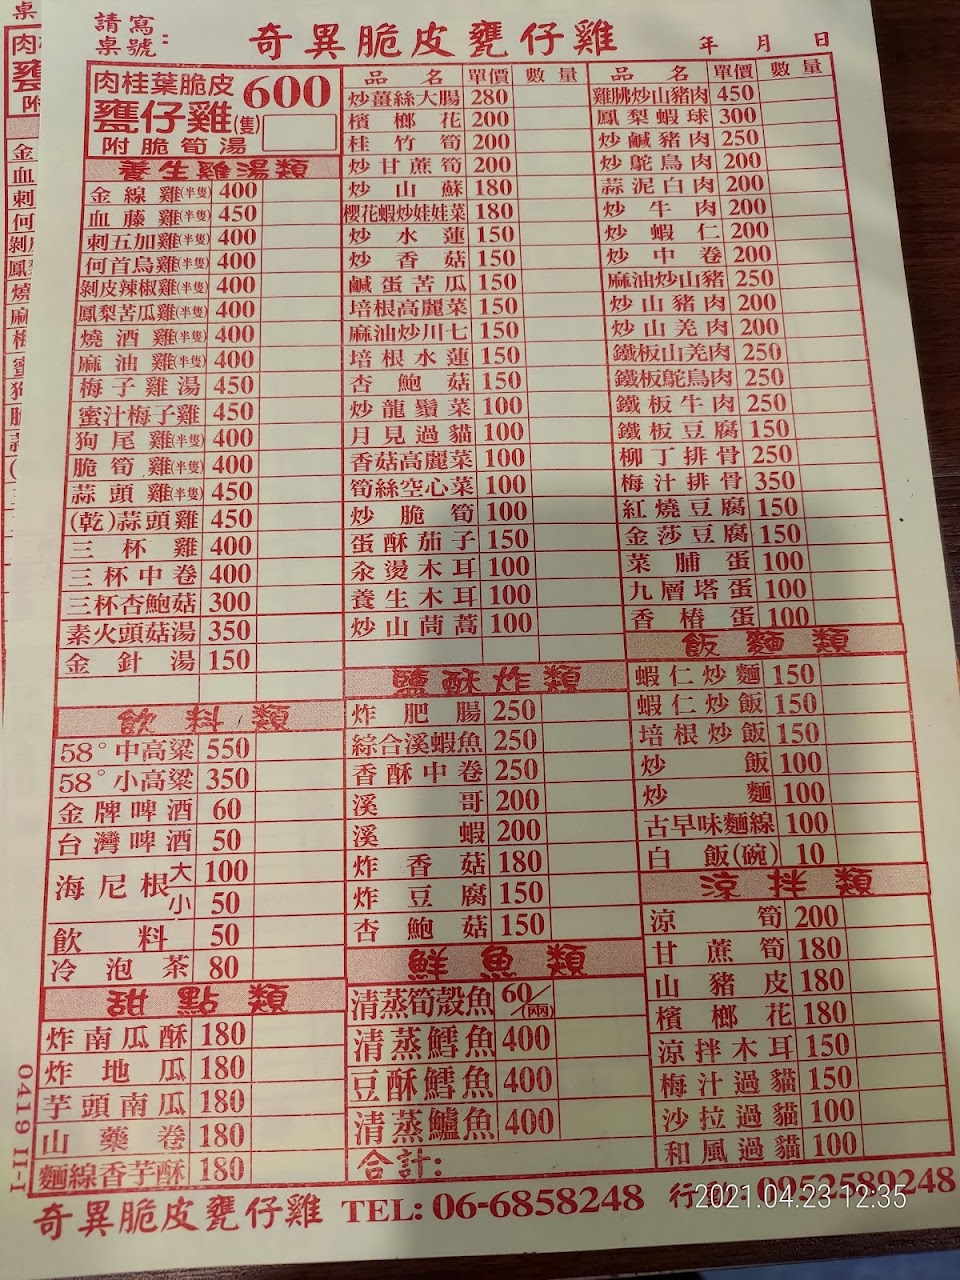 請寫
桌號:
奇異脆皮甕仔雞
年 月 日
肉桂葉脆皮
甕仔雞(隻) 600
附脆筍湯
養生雞湯類
金線雞(半隻) 400
血藤雞(半隻) 450
刺五加雞(半隻) 400
何首烏雞(半隻) 400
剝皮辣椒雞(半隻) 400
鳳梨苦瓜雞(半隻) 400
燒酒雞(半隻) 400
麻油雞(半隻) 400
梅子雞湯 450
蜜汁梅子雞 450
狗尾雞(半隻) 400
脆筍雞(半隻) 400
蒜頭雞(半隻) 450
(乾)蒜頭雞 450
三杯雞 400
三杯中卷 400
三杯杏鮑菇 300
素火頭菇湯 350
金針湯 150
飲料類
58°中高粱 550
58°小高粱 350
金牌啤酒 60
台灣啤酒 50
海尼根 大 100
小 50
飲料 50
冷泡茶 80
甜點類
炸南瓜酥 180
炸地瓜 180
芋頭南瓜 180
山藥卷 180
麵線香芋酥 180
品名 單價 數量
炒薑絲大腸 280
檳榔花 200
桂竹筍 200
炒甘蔗筍 200
炒山蘇 180
櫻花蝦炒娃娃菜 180
炒水蓮 150
炒香菇 150
鹹蛋苦瓜 150
培根高麗菜 150
麻油炒川七 150
培根水蓮 150
杏鮑菇 150
炒龍鬚菜 100
月見過貓 100
香菇高麗菜 100
筍絲空心菜 100
炒脆筍 100
蛋酥茄子 150
汆燙木耳 100
養生木耳 100
炒山茼蒿 100
鹽酥炸類
炸肥腸 250
綜合溪蝦魚 250
香酥中卷 250
溪哥 200
溪蝦 200
炸香菇 180
炸豆腐 150
杏鮑菇 150
鮮魚類
清蒸筍殼魚 60/(兩)
清蒸鱈魚 400
豆酥鱈魚 400
清蒸鱸魚 400
合計:
品名 單價 數量
雞胇炒山豬肉 450
鳳梨蝦球 300
炒鹹豬肉 250
炒鴕鳥肉 200
蒜泥白肉 200
炒牛肉 200
炒蝦仁 200
炒中卷 200
麻油炒山豬 250
炒山豬肉 200
炒山羌肉 200
鐵板山羌肉 250
鐵板鴕鳥肉 250
鐵板牛肉 250
鐵板豆腐 150
柳丁排骨 250
梅汁排骨 350
紅燒豆腐 150
金莎豆腐 150
菜脯蛋 100
九層塔蛋 100
香椿蛋 100
飯麵類
蝦仁炒麵 150
蝦仁炒飯 150
培根炒飯 150
炒飯 100
炒麵 100
古早味麵線 100
白飯(碗) 10
涼拌類
涼筍 200
甘蔗筍 180
山豬皮 180
檳榔花 180
涼拌木耳 150
梅汁過貓 150
沙拉過貓 100
和風過貓 100
0419 II-1
奇異脆皮甕仔雞 TEL: 06-6858248 行 0952589248
2021.04.23 12:35